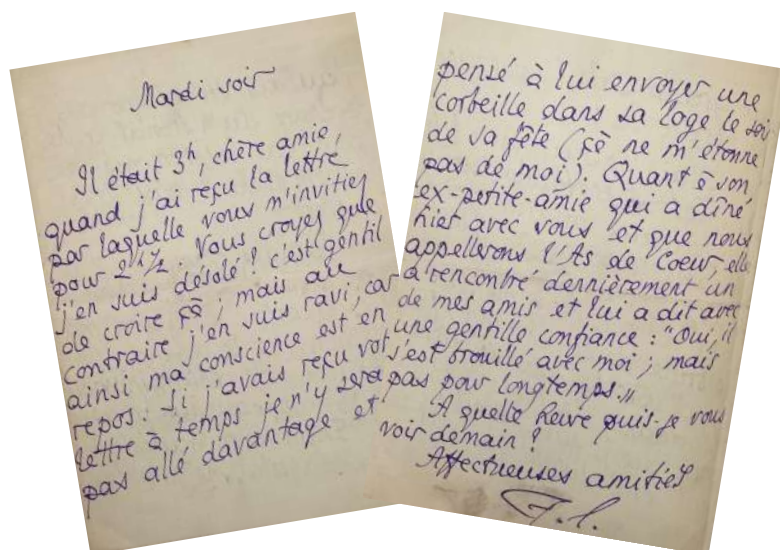 Mardi soir
Il était 3h, chère amie,
quand j'ai reçu la lettre
par laquelle vous m'invitiez
pour 2h ½. Vous croyez que
j'en suis désolé ! c'est gentil
de croire çè ; mais au
contraire j'en suis ravi, car
ainsi ma conscience est en
repos. Si j'avais reçu vot
lettre à temps je n'y sera
pas allé davantage et
pensé à lui envoyer une
corbeille dans sa loge le soi
de sa fête (çè ne m'étonne
pas de moi). Quant è son
ex-petite-amie qui a dîné
hier avec vous et que nous
appellerons l'As de Coeur, elle
a rencontré dernièrement un
de mes amis et lui a dit avec
une gentille confiance : "Oui, il
s'est brouillé avec moi ; mais
pas pour longtemps."
A quelle heure puis-je vous
voir demain ?
Affectueuses amitiés